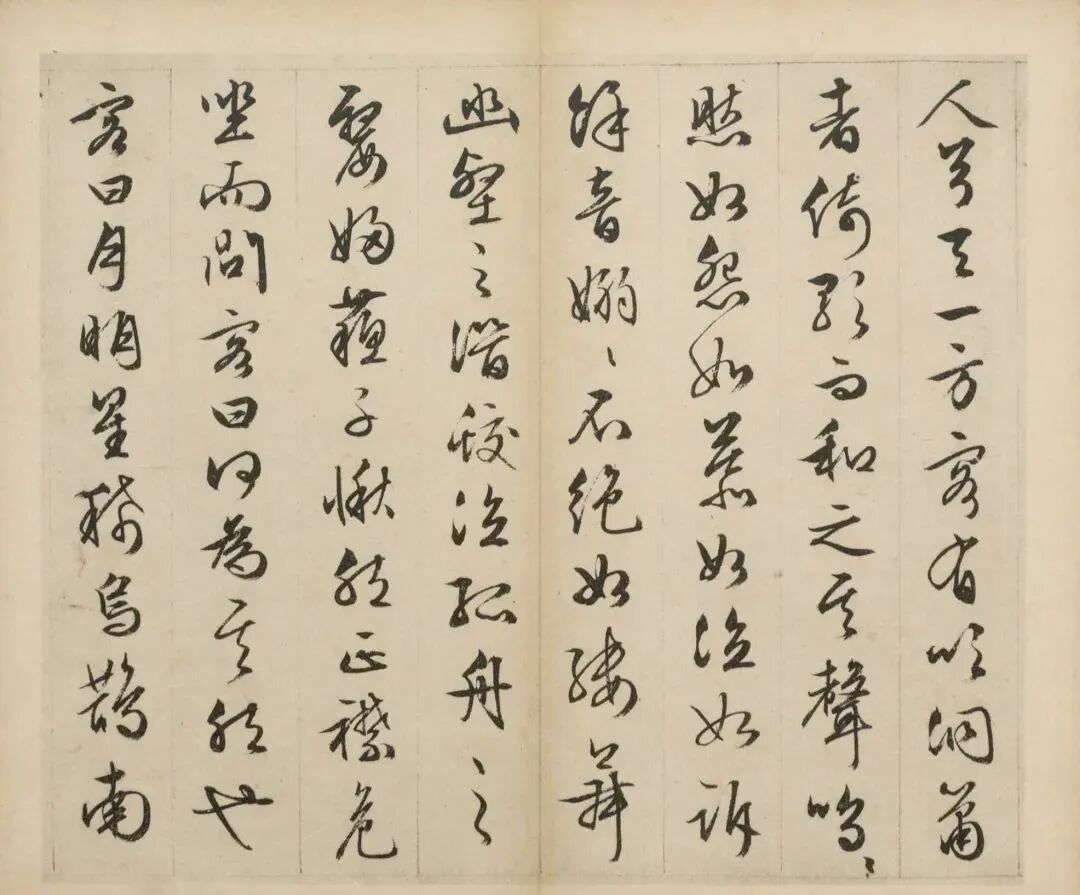 人兮天一方客有吹洞簫
者倚歌而和之其聲嗚〻
然如怨如慕如泣如訴
餘音嫋〻不絕如縷舞
幽壑之潛蛟泣孤舟之
嫠婦蘓子愀然正襟危
坐而問客曰何為其然也
客曰月明星稀烏鵲南